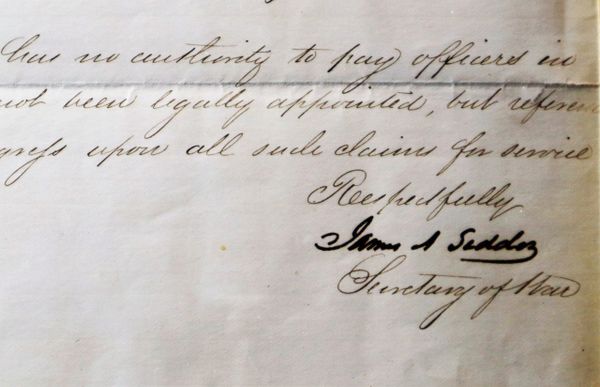 has no authority to pay officers in
not been legally appointed, but referen
gress upon all such claims for service
Respectfully
James A Seddon
Secretary of War